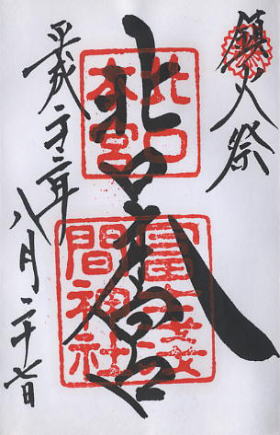 鎮火祭
北口本宮
平成二十二年八月二十七日
北口
本宮
冨士浅
間神社